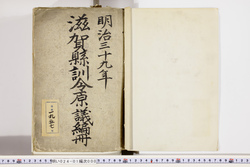 明治三十九年
滋賀縣訓令原議編冊